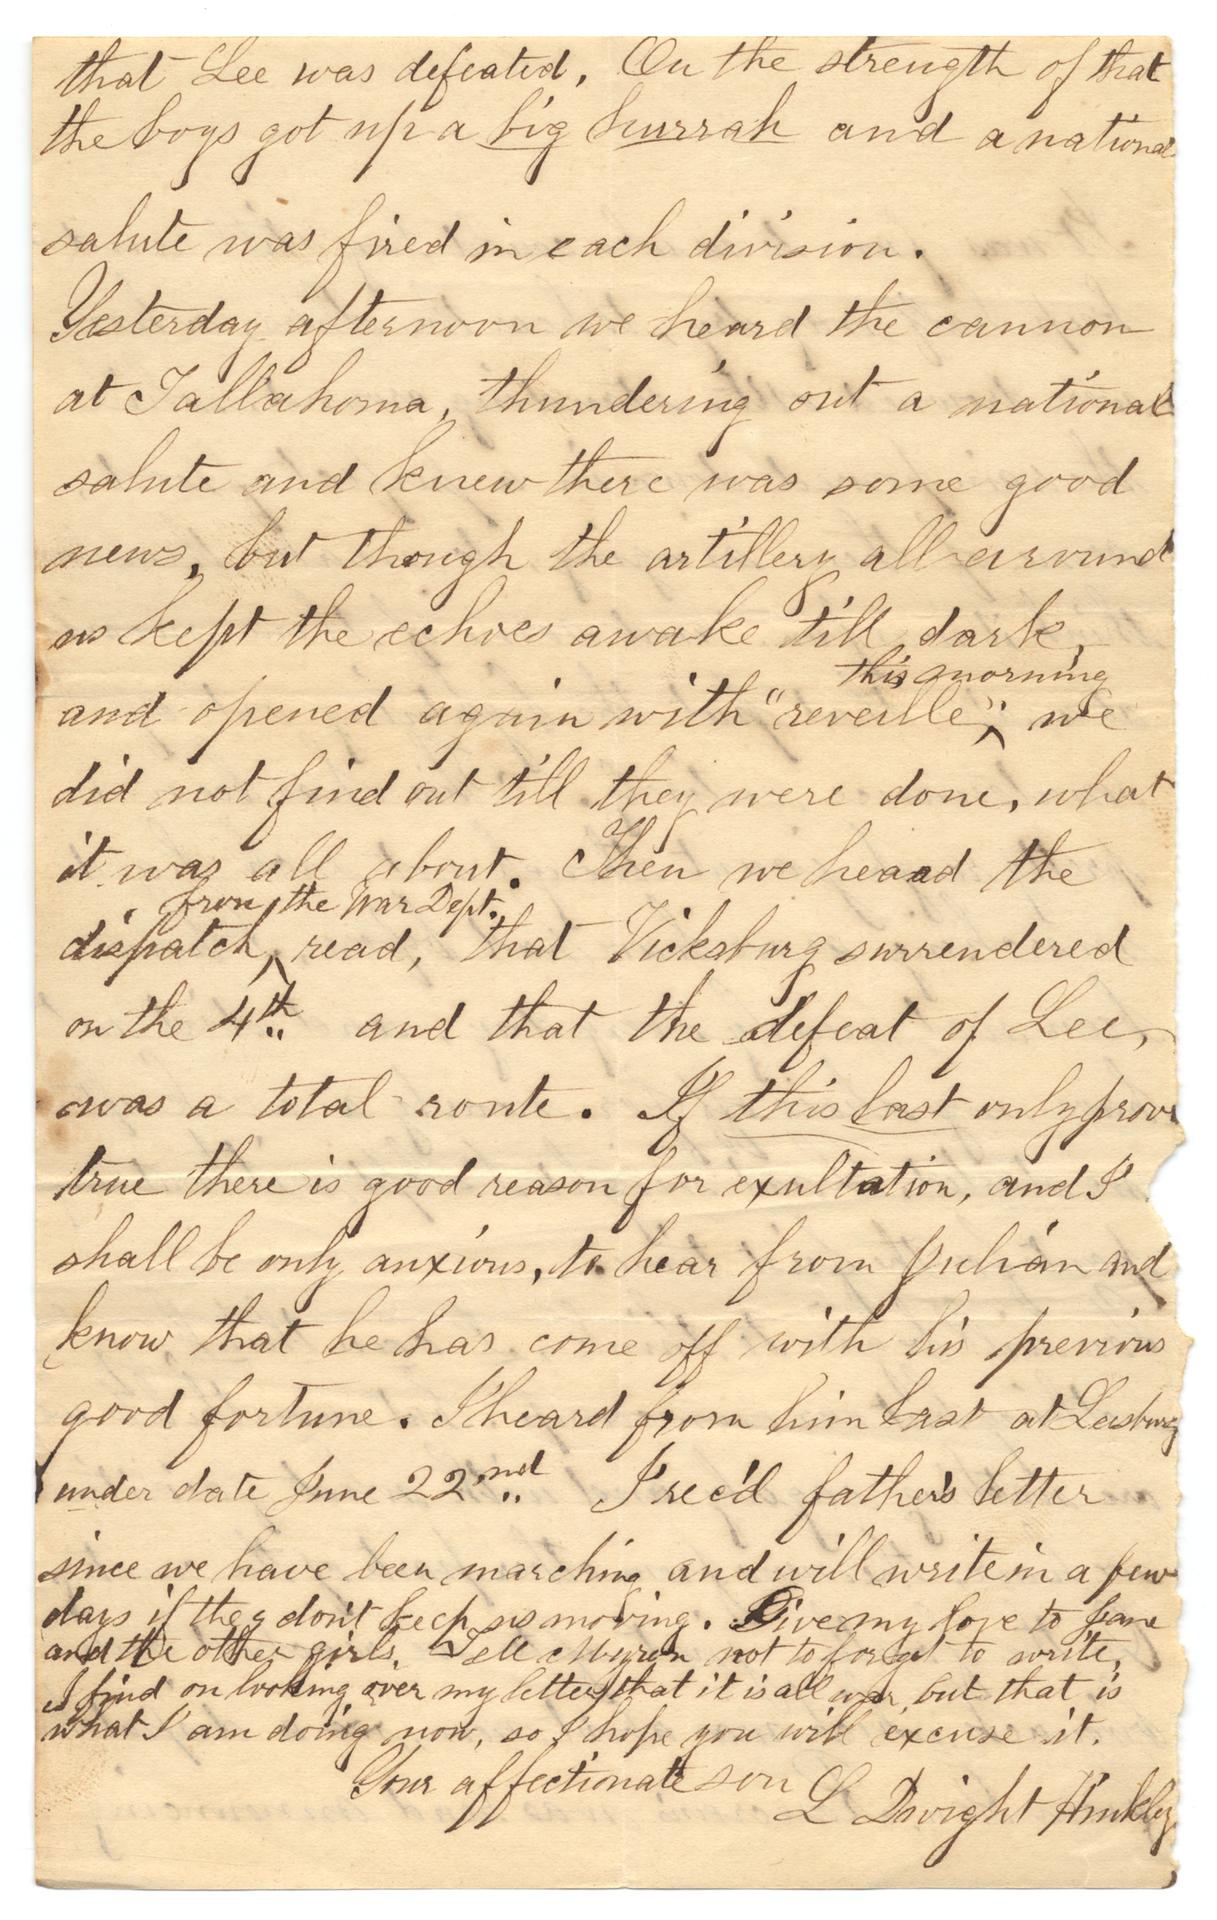 that Lee was defeated. On the strength of that
the boys got up a big hurrah and a national
salute was fired in each division.
Yesterday afternoon we heard the cannon
at Tallahoma, thundering out a national
salute and knew there was some good
news, but though the artillery all around
us kept the echoes awake till dark,
this morning
and opened again with "reveille"; we
did not find out till they were done, what
it was all about. Then we heard the
from the War Dept.
dispatch, read, that Vicksburg surrendered
on the 4th and that the defeat of Lee,
was a total route. If this last only prove
true there is good reason for exultation, and I
shall be only anxious, to hear from Julian and
know that he has come off with his previous
good fortune. I heard from him last at Leesburg
under date June 22nd I rec'd father's letter
since we have been marching and will write in a few
days if they don't keep us moving. Give my love to Jane
and the other girls. Tell Myron not to forget to write,
I find on looking over my letter that it is all war, but that is
what I am doing now, so I hope you will excuse it.
Your affectionate son L Dwight Hinkley